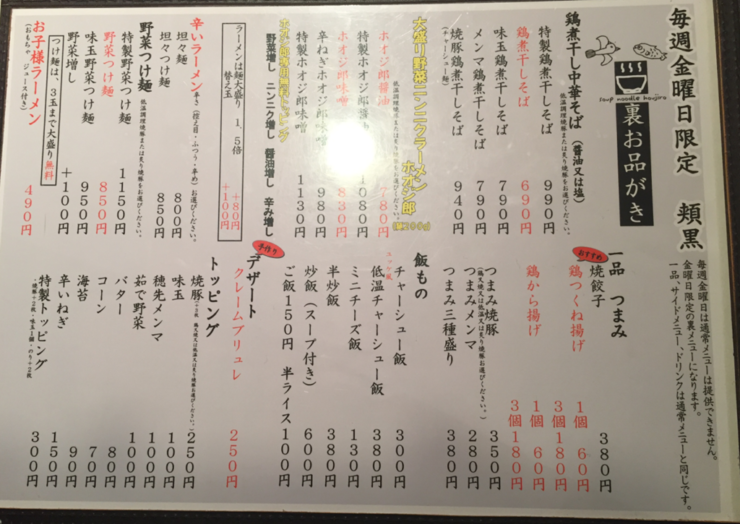 毎週金曜日限定 頬黒
裏お品がき
soup noodle hoojiro
毎週金曜日は通常メニューは提供できません。
金曜日限定の裏メニューになります。
一品、サイドメニュー、ドリンクは通常メニューと同じです。
鶏煮干し中華そば(醤油又は塩)
低温調理焼豚または炙り焼豚をお選びください。
特製鶏煮干しそば 990円
鶏煮干しそば 690円
味玉鶏煮干しそば 790円
メンマ鶏煮干しそば 790円
焼豚鶏煮干しそば 940円
(チャーシュー麺)
大盛り野菜ニンニクラーメン ホオジ郎
低温調理焼豚または炙り焼豚をお選びください。
ホオジ郎醤油 780円
特製ホオジ郎醤油 1080円
ホオジ郎味噌 830円
辛ねぎホオジ郎味噌 980円
特製ホオジ郎味噌 1130円
ホオジ郎専用無料トッピング
野菜増し ニンニク増し 醤油増し 辛み増し
ラーメンは麺大盛り 1.5倍 +80円
替え玉 +100円
辛いラーメン 辛さ(控え目・ふつう・辛め)お選びください。
坦々麺 800円
坦々つけ麺 850円
野菜つけ麺 低温調理焼豚または炙り焼豚をお選びください。
特製野菜つけ麺 1150円
野菜つけ麺 850円
味玉野菜つけ麺 950円
野菜増し +100円
つけ麺は、3玉まで大盛り無料
お子様ラーメン 490円
(おもちゃ ジュース付き)
一品 つまみ
おすすめ
焼餃子 380円
鶏つくね揚げ 1個 60円
3個 180円
鶏から揚げ 1個 60円
3個 180円
つまみ焼豚 350円
つまみメンマ 280円
つまみ三種盛り 380円
飯もの
チャーシュー飯 300円
低温チャーシュー飯 380円
ミニチーズ飯 130円
半炒飯 380円
炒飯(スープ付き) 600円
ご飯150円 半ライス100円
手作り
デザート
クレームブリュレ 250円
トッピング
焼豚 250円
味玉 100円
穂先メンマ 100円
茹で野菜 100円
バター 80円
コーン 70円
海苔 90円
辛いねぎ 150円
特製トッピング 300円